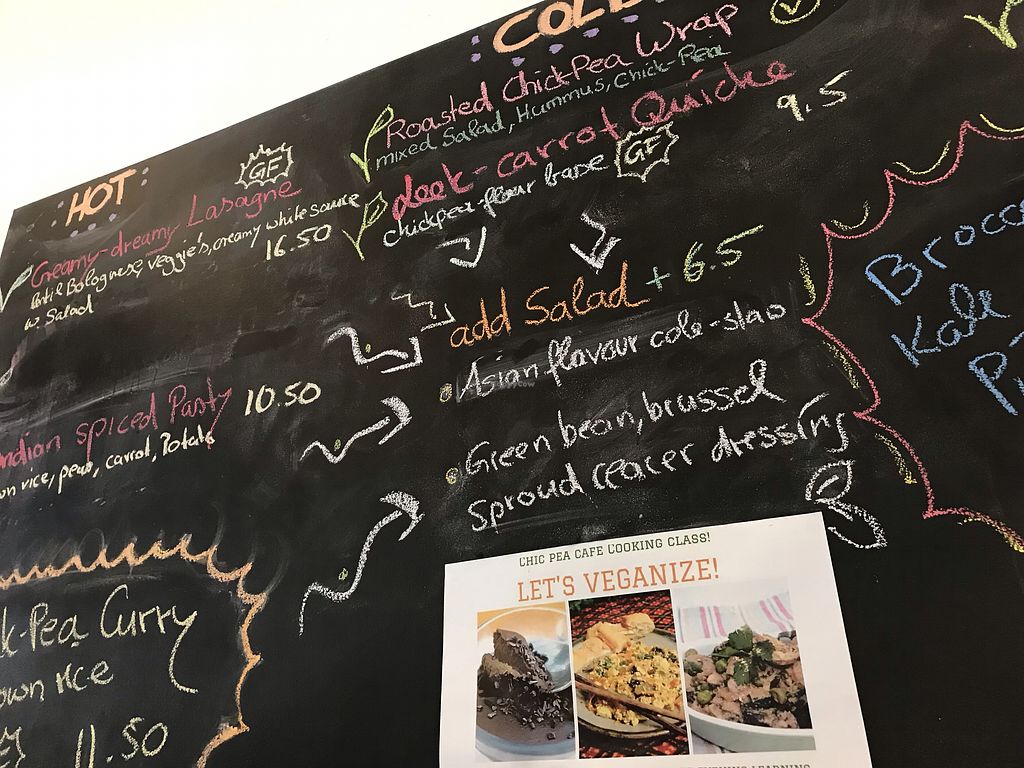 HOT
GF
Creamy-dreamy Lasagne
lentil Bolognese, veggie's, creamy white sauce
w. Salad
16.50
ndian spiced Pasty 10.50
wn rice, peas, carrot, Potato
k-Pea Curry
own rice
11.50
COLD
Roasted ChickPea Wrap
mixed Salad, Hummus, Chick-Pea
Leek-carrot Quiche 9.5
chickpea-flour base GF
add Salad + 6.5
Asian flavour cole-slaw
Green bean, brussel
Sproud dressing
Brocco
Kale
CHIC PEA CAFE COOKING CLASS!
LET'S VEGANIZE!